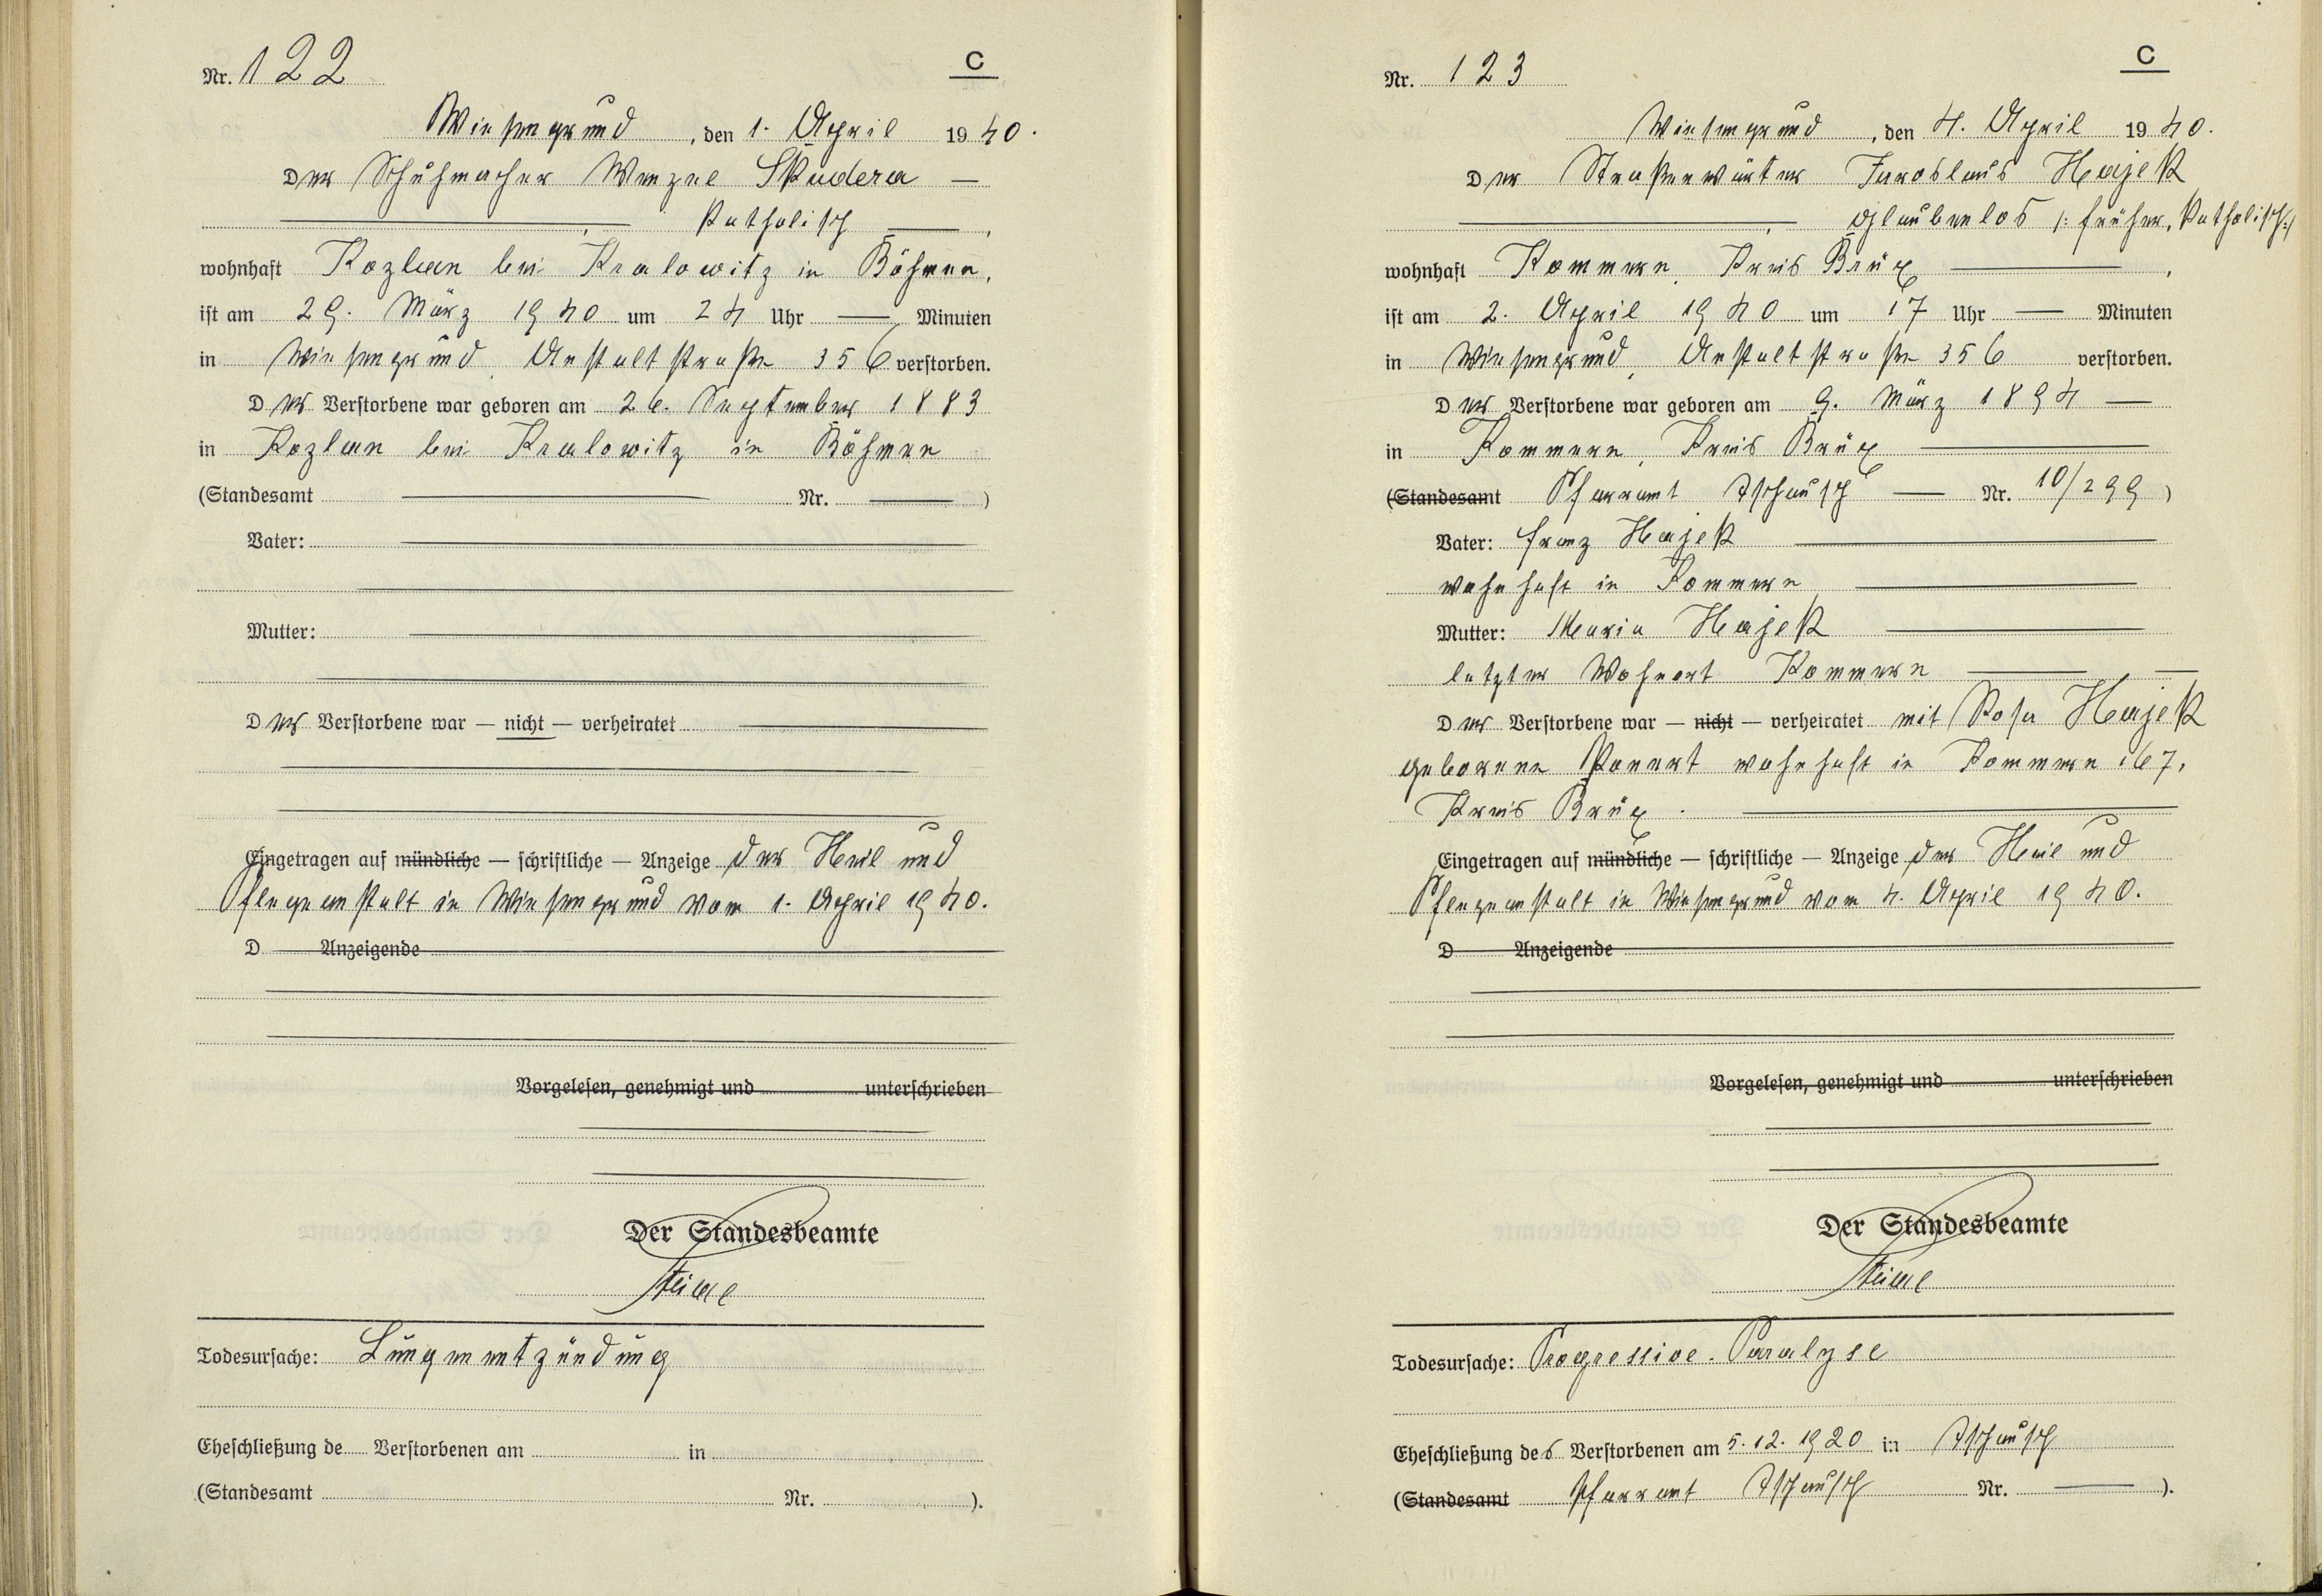 C
Nr. 122
Wiesengrund, den 1. April 1940.
Der Schuhmacher Wenzel Skudera —
katholisch —,
wohnhaft Kozlan bei Kralowitz in Böhmen,
ist am 29. März 1940 um 24 Uhr — Minuten
in Wiesengrund, Anstaltstraße 356 verstorben.
Der Verstorbene war geboren am 26. September 1883
in Kozlan bei Kralowitz in Böhmen
(Standesamt — Nr. — )
Vater: —
Mutter: —
Der Verstorbene war — nicht — verheiratet —
Eingetragen auf mündliche — schriftliche — Anzeige der Heil und
Pflegeanstalt in Wiesengrund vom 1. April 1940.
D Anzeigende
Vorgelesen, genehmigt und unterschrieben
Der Standesbeamte
Todesursache: Lungenentzündung
Eheschließung de Verstorbenen am in
(Standesamt Nr. ).
C
Nr. 123
Wiesengrund, den 4. April 1940.
Der Straßenwärter Jaroslaus Hajek
—, glaubenlos /: früher, katholisch:/
wohnhaft Kommern, Kreis Brüx —,
ist am 2. April 1940 um 17 Uhr — Minuten
in Wiesengrund, Anstaltstraße 356 verstorben.
Der Verstorbene war geboren am 9. März 1894 —
in Kommern, Kreis Brüx —
(Standesamt Pfarramt Tschausch — Nr. 10/299 )
Vater: Franz Hajek —
wohnhaft in Kommern —
Mutter: Maria Hajek —
letzter Wohnort Kommern —
Der Verstorbene war — nicht — verheiratet mit Rosa Hajek
geborene wohnhaft in Kommern 167,
Kreis Brüx. —
Eingetragen auf mündliche — schriftliche — Anzeige der Heil und
Pflegeanstalt in Wiesengrund vom 4. April 1940.
D Anzeigende
Vorgelesen, genehmigt und unterschrieben
Der Standesbeamte
Todesursache: Progressive Paralyse
Eheschließung des Verstorbenen am 5.12.1920 in Tschausch
(Standesamt Pfarramt Tschausch Nr. — ).